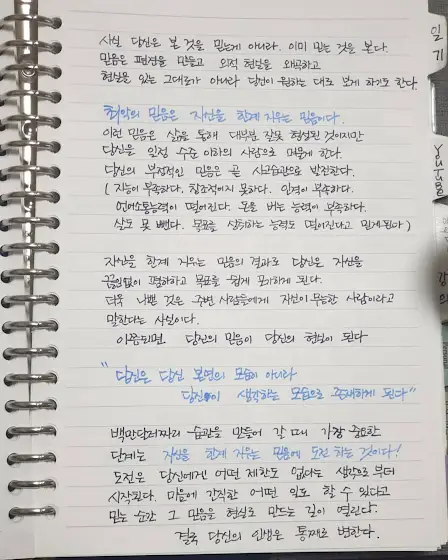 사실 당신은 본 것을 믿는게 아니라. 이미 믿는 것을 본다.
믿음은 편견을 만들고 외적 현실을 왜곡하고
현실을 있는 그대로가 아니라 당신이 원하는 대로 보게 하기도 한다.
최악의 믿음은 자신을 한계 지우는 믿음이다.
이런 믿음은 삶을 통해 대부분 잘못 형성된 것이지만
당신을 일정 수준 이하의 사람으로 머물게 한다.
당신의 부정적인 믿음은 곧 사고습관으로 발전한다.
( 지능이 부족하다. 창조적이지 못하다. 인격이 부족하다.
언어소통능력이 떨어진다. 돈을 버는 능력이 부족하다.
살도 못 뺀다. 목표를 달성하는 능력도 떨어진다고 믿게된다 )
자신을 한계 지우는 믿음의 결과로 당신은 자신을
끊임없이 폄하하고 목표를 쉽게 포기하게 된다.
더욱 나쁜 것은 주변 사람들에게 자신이 무능한 사람이라고
말한다는 사실이다.
이쯤되면 당신의 믿음이 당신의 현실이 된다
" 당신은 당신 본연의 모습이 아니라
당신이 생각하는 모습으로 존재하게 된다"
백만달러짜리 습관을 만들어 갈 때 가장 중요한
단계는 자신을 한계 지우는 믿음에 도전 하는 것이다!
도전은 당신에겐 어떤 제한도 없다는 생각으로 부터
시작된다. 마음에 간직한 어떤 일도 할 수 있다고
믿는 순간 그 믿음을 현실로 만드는 길이 열린다.
결국 당신의 인생은 통째로 변한다.
일기
YouTube
강의